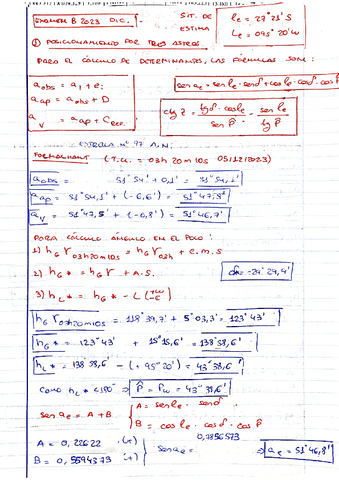 EXAMEN B 2023 DIC.
SIT. DE ESTIMA
le = 27° 21' S
Le = 095° 20' W
① POSICIONAMIENTO POR TRES ASTROS.
PARA EL CÁLCULO DE DETERMINANTES, LAS FÓRMULAS SON:
a obs = a i + ei
a ap = a obs + D
a v = a ap + C
sen ae = sen le · sen d + cos le · cos d · cos P
ctg Z = tg d · cos le / sen P − sen le / tg P
ESTRELLA nº 97 A.N.
FORMALHAUT (T.U. = 03h 20m 10s 05/12/2023)
a obs = 51° 54' + 0,1' = 51° 54,1'
a ap = 51° 54,1' + (-6,6') = 51° 47,5'
a v = 51° 47,5' + (-0,8') = 51° 46,7'
PARA CÁLCULO ÁNGULO EN EL POLO:
1) hG γ 03h20m10s = hG γ 03h + C.M.S
2) hG * = hG γ + A.S.
d* = -29° 29,4'
3) hL * = hG * - L (+W -E)
hG γ 03h20m10s = 118° 39,7' + 5° 03,3' = 123° 43'
hG * = 123° 43' + 15° 15,6' = 138° 58,6'
hL * = 138° 58,6' - (+ 95° 20') = 43° 38,6'
COMO hL * < 180° ⇒ P = Pw = 43° 38,6'
sen ae = A + B
A = sen le · sen d
B = cos le · cos d · cos P
A = 0,22622 (+)
B = 0,5594373 (+)
sen ae = 0,7856573
⇒ ae = 51° 46,8'